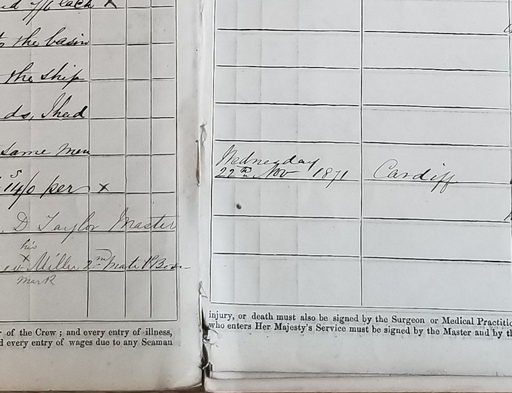 each x
the basin
the ship
ds, I had
same men
14/0 per x
D Taylor Master
his
x
Miller 2nd Mate & Bosn
mark
of the Crew ; and every entry of illness,
every entry of wages due to any Seaman
Wednesday
22nd Nov 1871
Cardiff
injury, or death must also be signed by the Surgeon or Medical Practitio
who enters Her Majesty's Service must be signed by the Master and by th